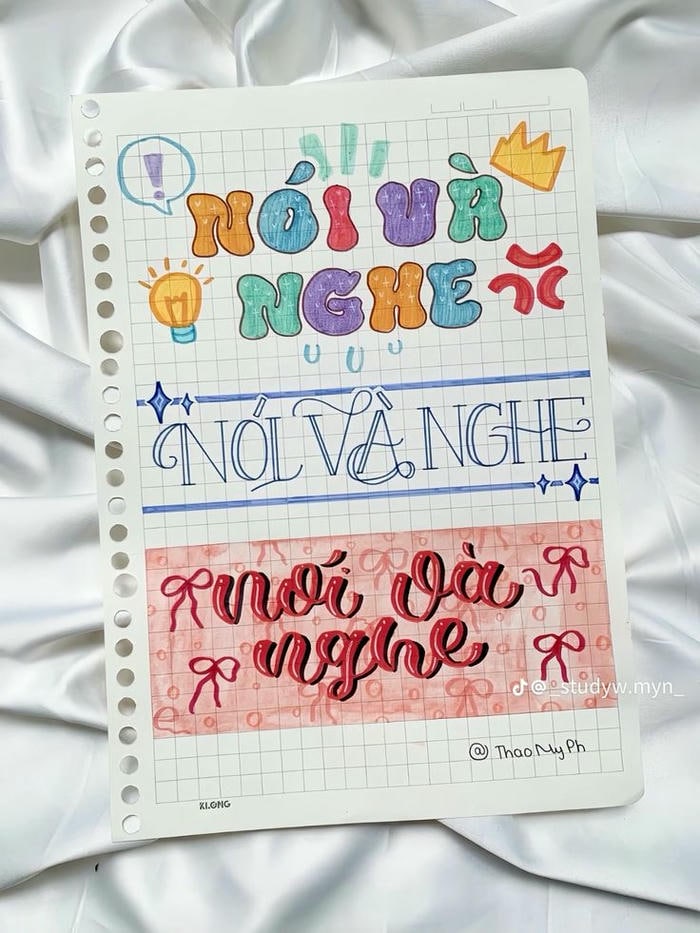 !
NÓI VÀ
NGHE
NÓI VÀ NGHE
nói và
nghe
@_studyw.myn_
@ Thao My Ph
KLONG